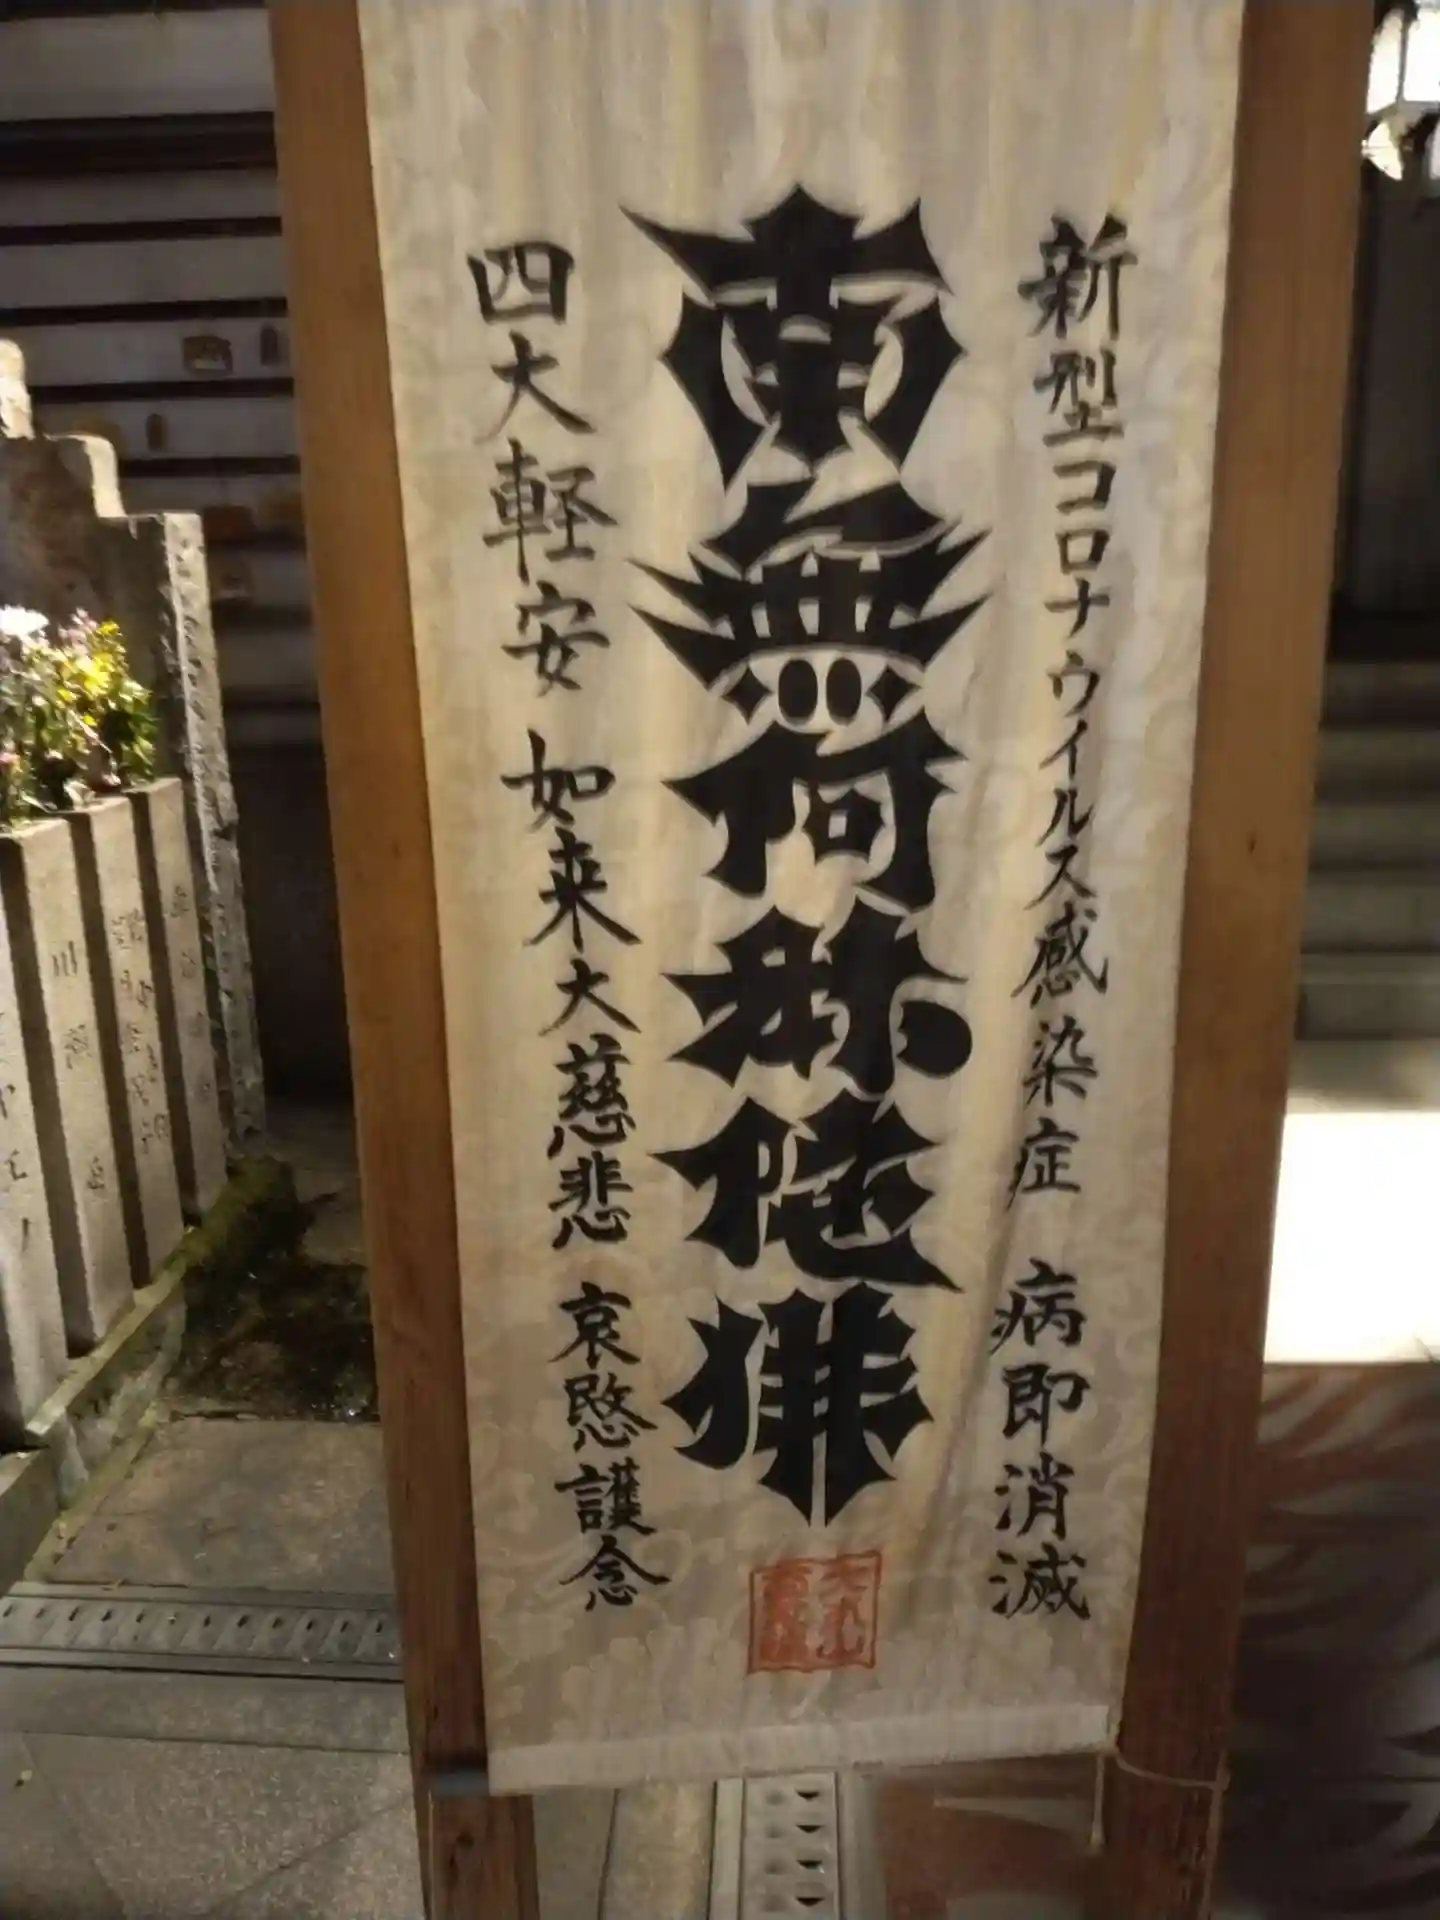 新型コロナウイルス感染症 病即消滅
南無阿弥陀佛
四大軽安 如来大慈悲 哀愍護念